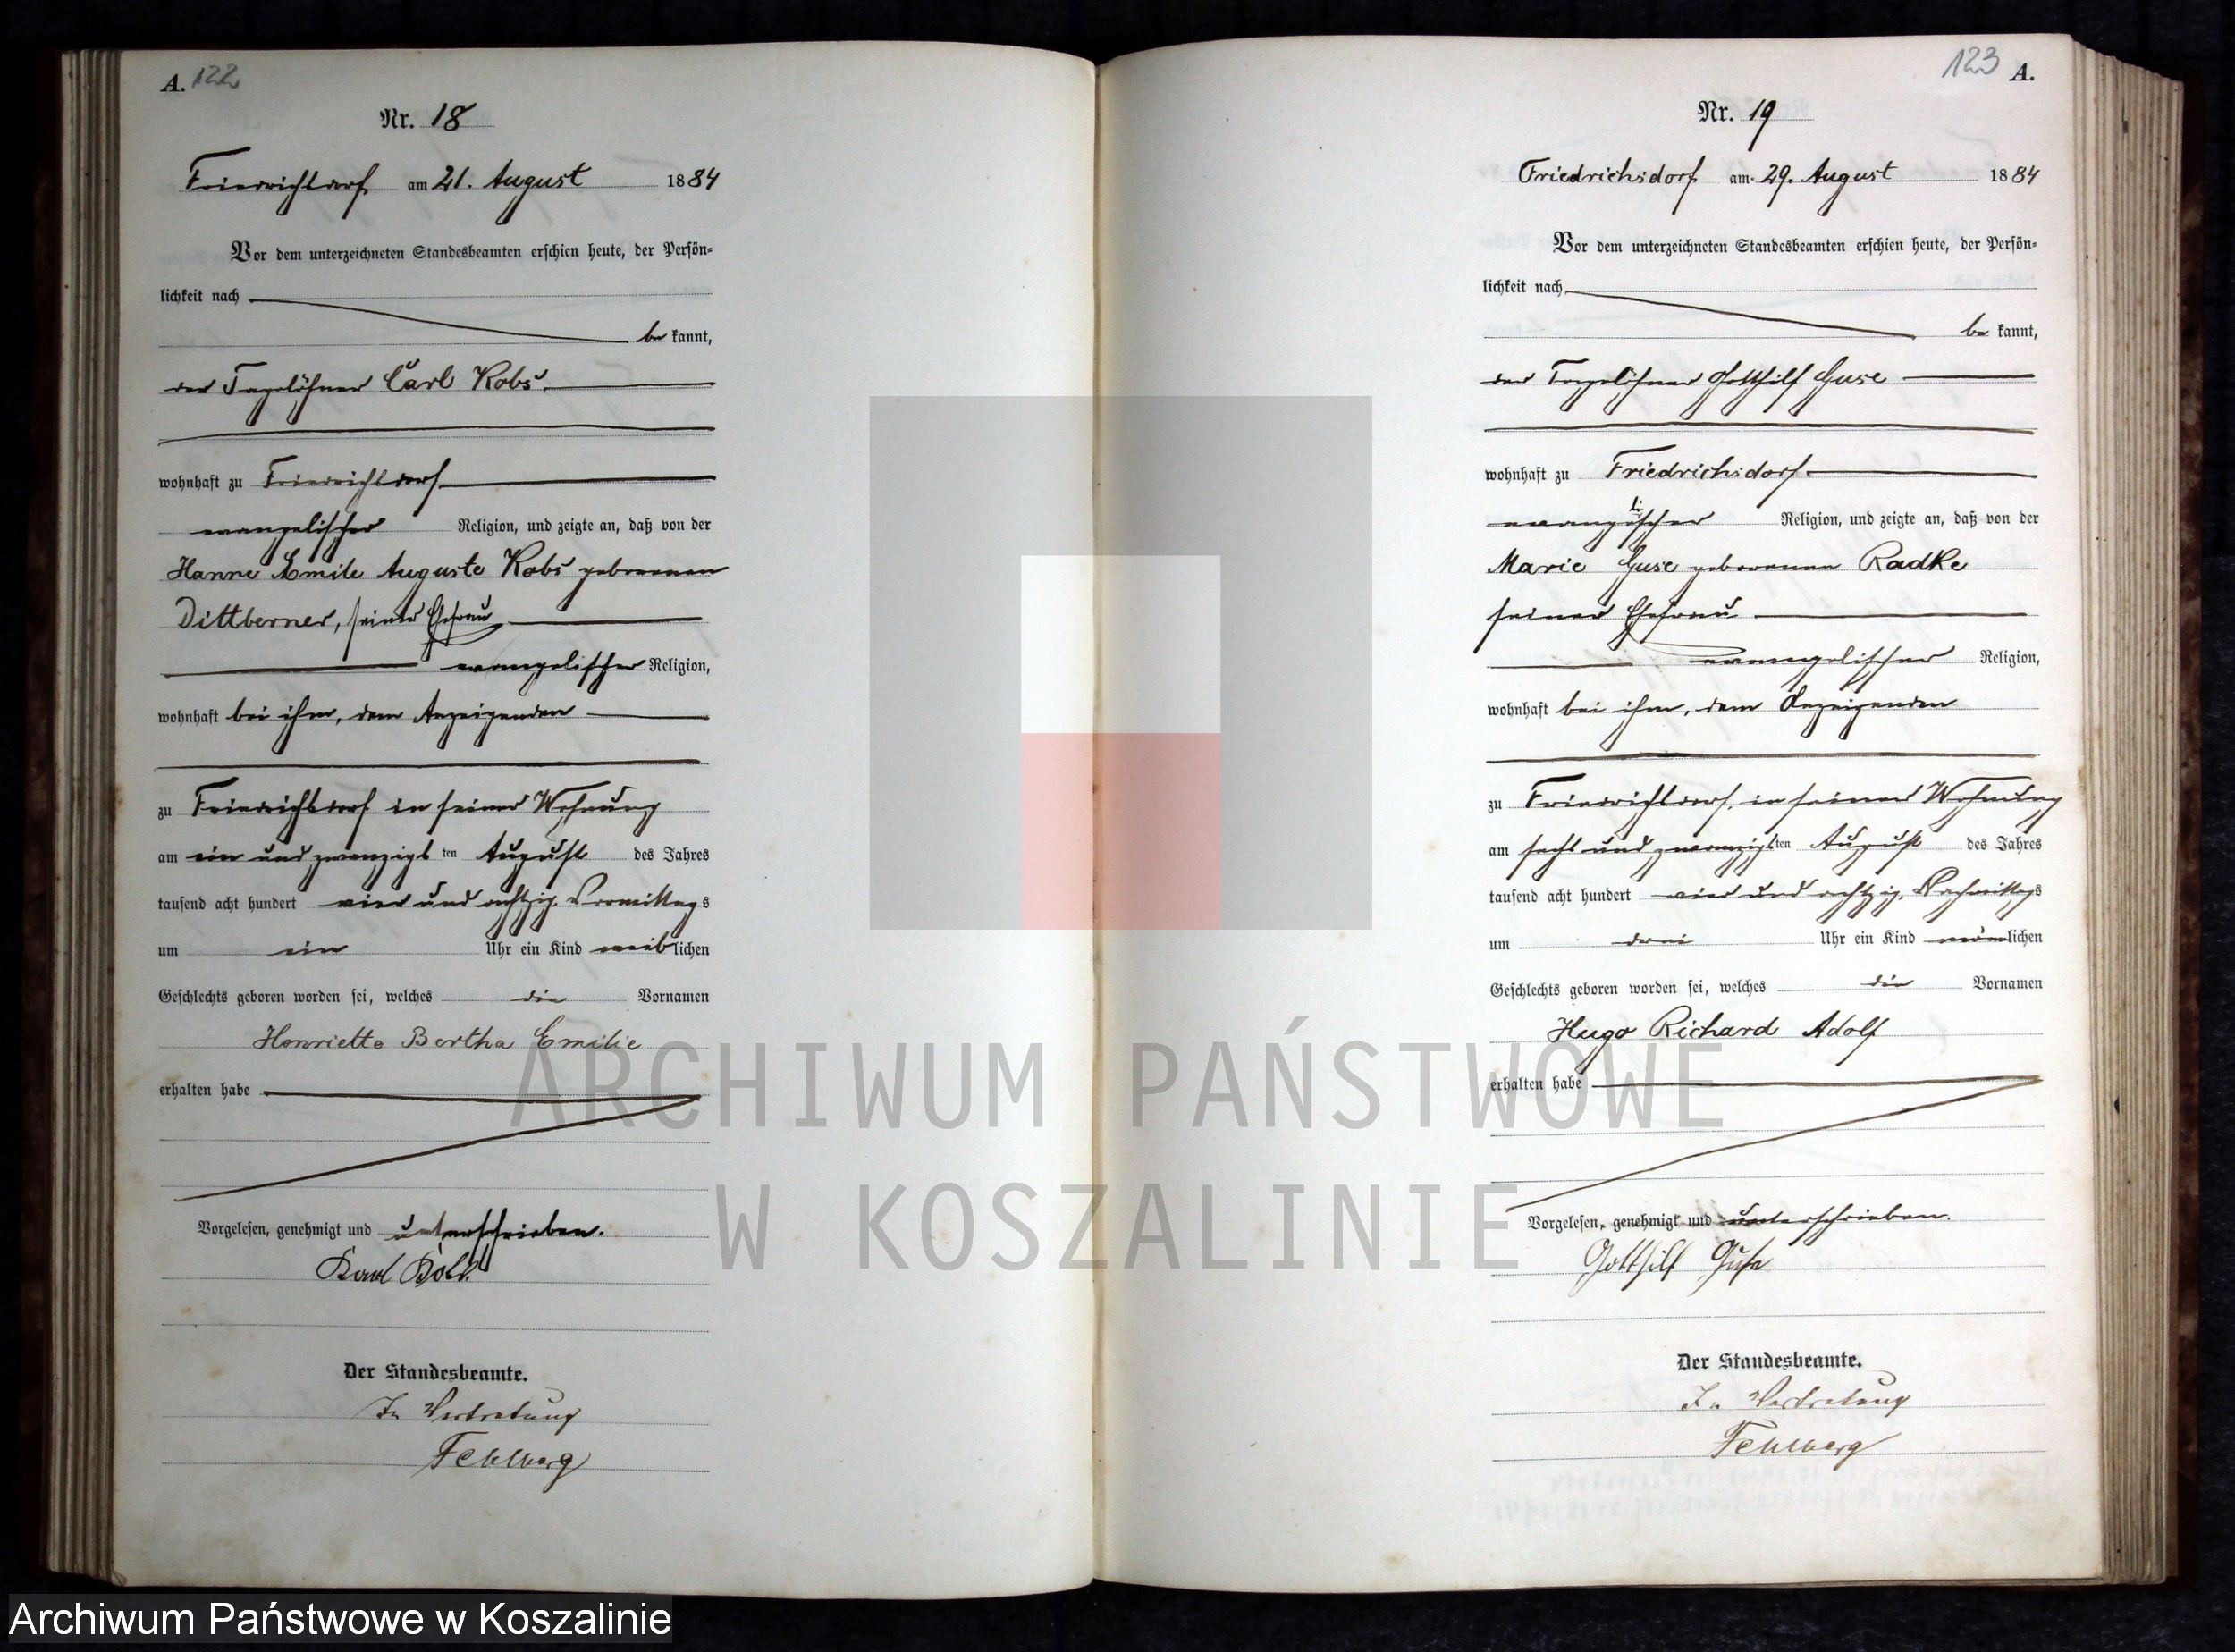 A. 122
Nr. 18
Friedrichsdorf am 21. August 1884
Vor dem unterzeichneten Standesbeamten erschien heute, der Persön-
lichkeit nach
be kannt,
der Tagelöhner Carl Kobs.
wohnhaft zu Friedrichsdorf
evangelischer Religion, und zeigte an, daß von der
Hanne Emile Auguste Kobs geborenen
Dittberner, seiner Ehefrau
evangelischer Religion,
wohnhaft bei ihm, dem Anzeigenden
zu Friedrichsdorf in seiner Wohnung
am ein und zwanzigs ten August des Jahres
tausend acht hundert vier und achtzig Vormittags
um ein Uhr ein Kind weiblichen
Geschlechts geboren worden sei, welches die Vornamen
Henriette Bertha Emilie
erhalten habe
Vorgelesen, genehmigt und unterschrieben.
Karl Kobs
Der Standesbeamte.
In Vertretung
Fehlberg
123 A.
Nr. 19
Friedrichsdorf am 29. August 1884
Vor dem unterzeichneten Standesbeamten erschien heute, der Persön-
lichkeit nach
be kannt,
der Tagelöhner Gotthilf Guse
wohnhaft zu Friedrichsdorf.
evangelischer Religion, und zeigte an, daß von der
Marie Guse geborenen Radke
seiner Ehefrau
evangelischer Religion,
wohnhaft bei ihm, dem Anzeigenden
zu Friedrichsdorf, in seiner Wohnung
am sechs und zwanzigsten August des Jahres
tausend acht hundert vier und achtzig, Nachmittags
um drei Uhr ein Kind männlichen
Geschlechts geboren worden sei, welches die Vornamen
Hugo Richard Adolf
erhalten habe
Vorgelesen, genehmigt und unterschrieben.
Gotthilf Guse
Der Standesbeamte.
In Vertretung
Fehlberg
ARCHIWUM PAŃSTWOWE
W KOSZALINIE
Archiwum Państwowe w Koszalinie